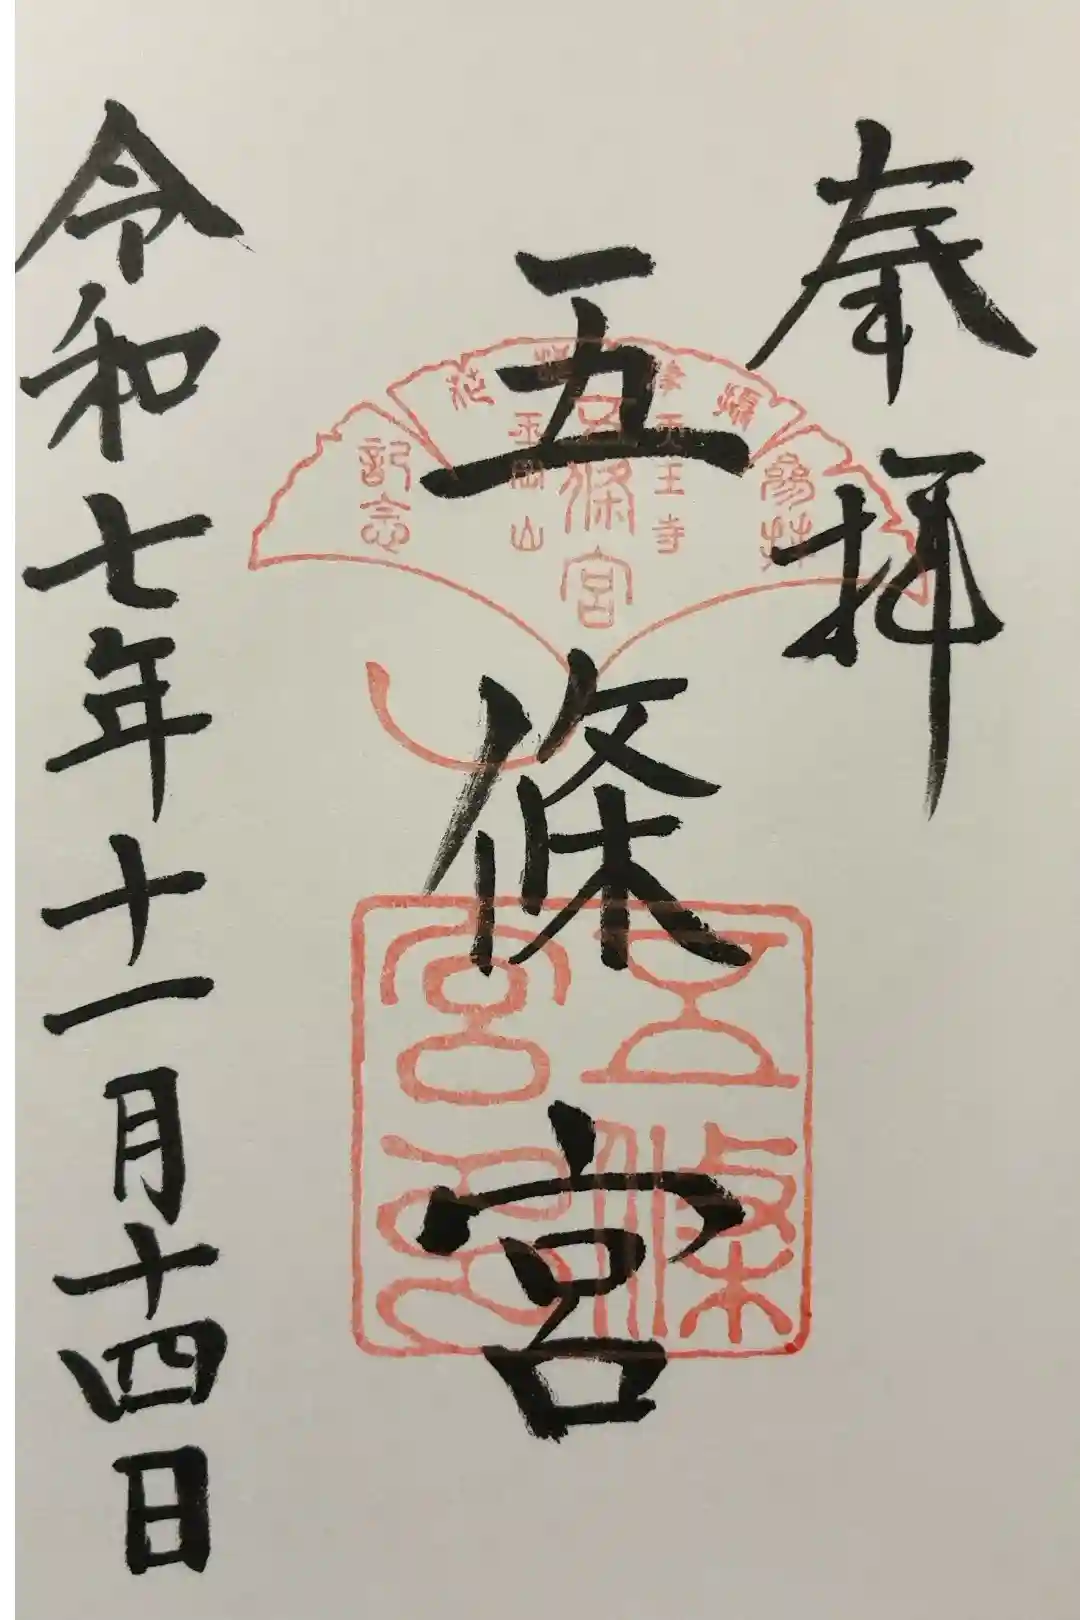 奉拝
五條宮
令和七年十一月十四日
參拜
攝津
天王寺
五條宮
記念
五條
宮印